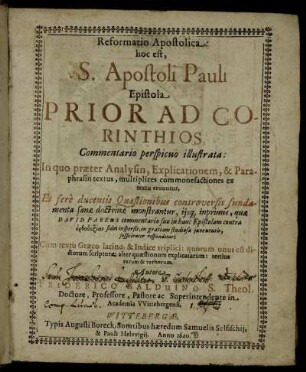 Reformatio Apostolica
hoc est,
S. Apostoli Pauli
Epistola
PRIOR AD CO-
RINTHIOS,
Commentario perspicuo illustrata:
In quo præter Analysin, Explicationem, & Para-
phrasin textus, multiplices commonefactiones ex
textu eruuntur,
Et ferè ducentis Quæstionibus controversis funda-
menta sanæ doctrinæ monstrantur, ijsq, imprimis, quæ
DAVID PAREUS commentario suo in hanc Epistolam contra
fidei inspersit, in gratiam studiosæ juventutis,
respondetur:
Cum textu Græco-latino, & Indice triplici: quorum unus est di-
ctorum scripturæ, alter quæstionum explicatarum: tertius
rerum & verborum.
Autore
FRIDERICO BALDUINO S. Theol.
Doctore, Professore, Pastore ac Superintendente in
Academia VVitebergensi.
WITTEBERGÆ,
Typis Augusti Boreck, Sumtibus hæredum Samuelis Selfischij,
& Pauli Helwigij. Anno 1620.